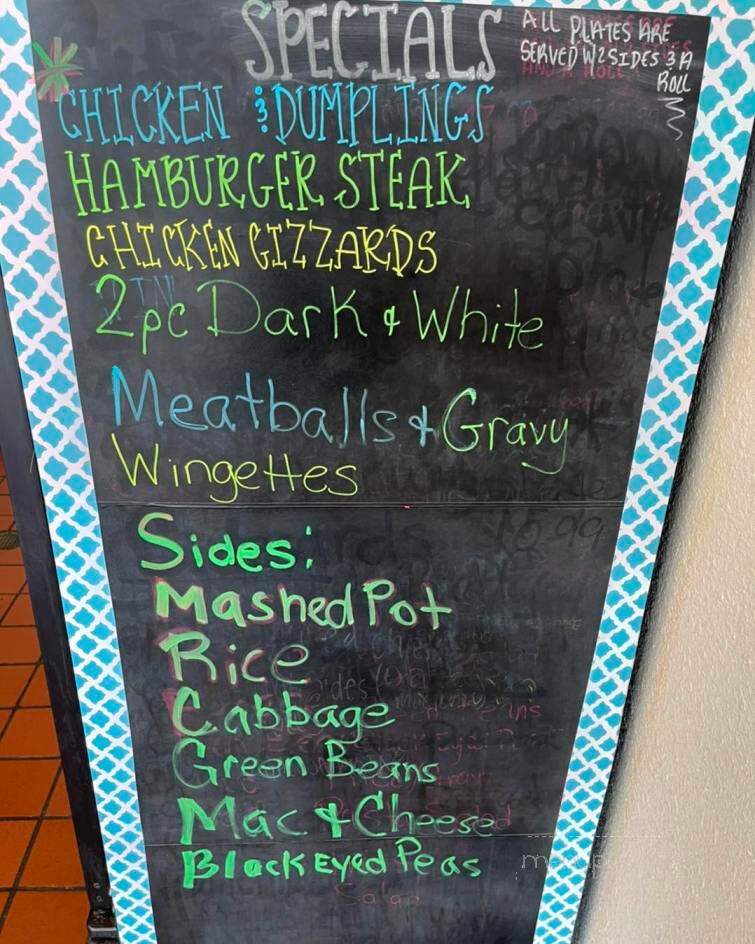 SPECIALS
ALL PLATES ARE
SERVED W/2 SIDES & A
ROLL
CHICKEN & DUMPLINGS
HAMBURGER STEAK
CHICKEN GIZZARDS
2pc Dark & White
Meatballs & Gravy
Wingettes
Sides:
Mashed Pot
Rice
Cabbage
Green Beans
Mac & Cheese
Black Eyed Peas